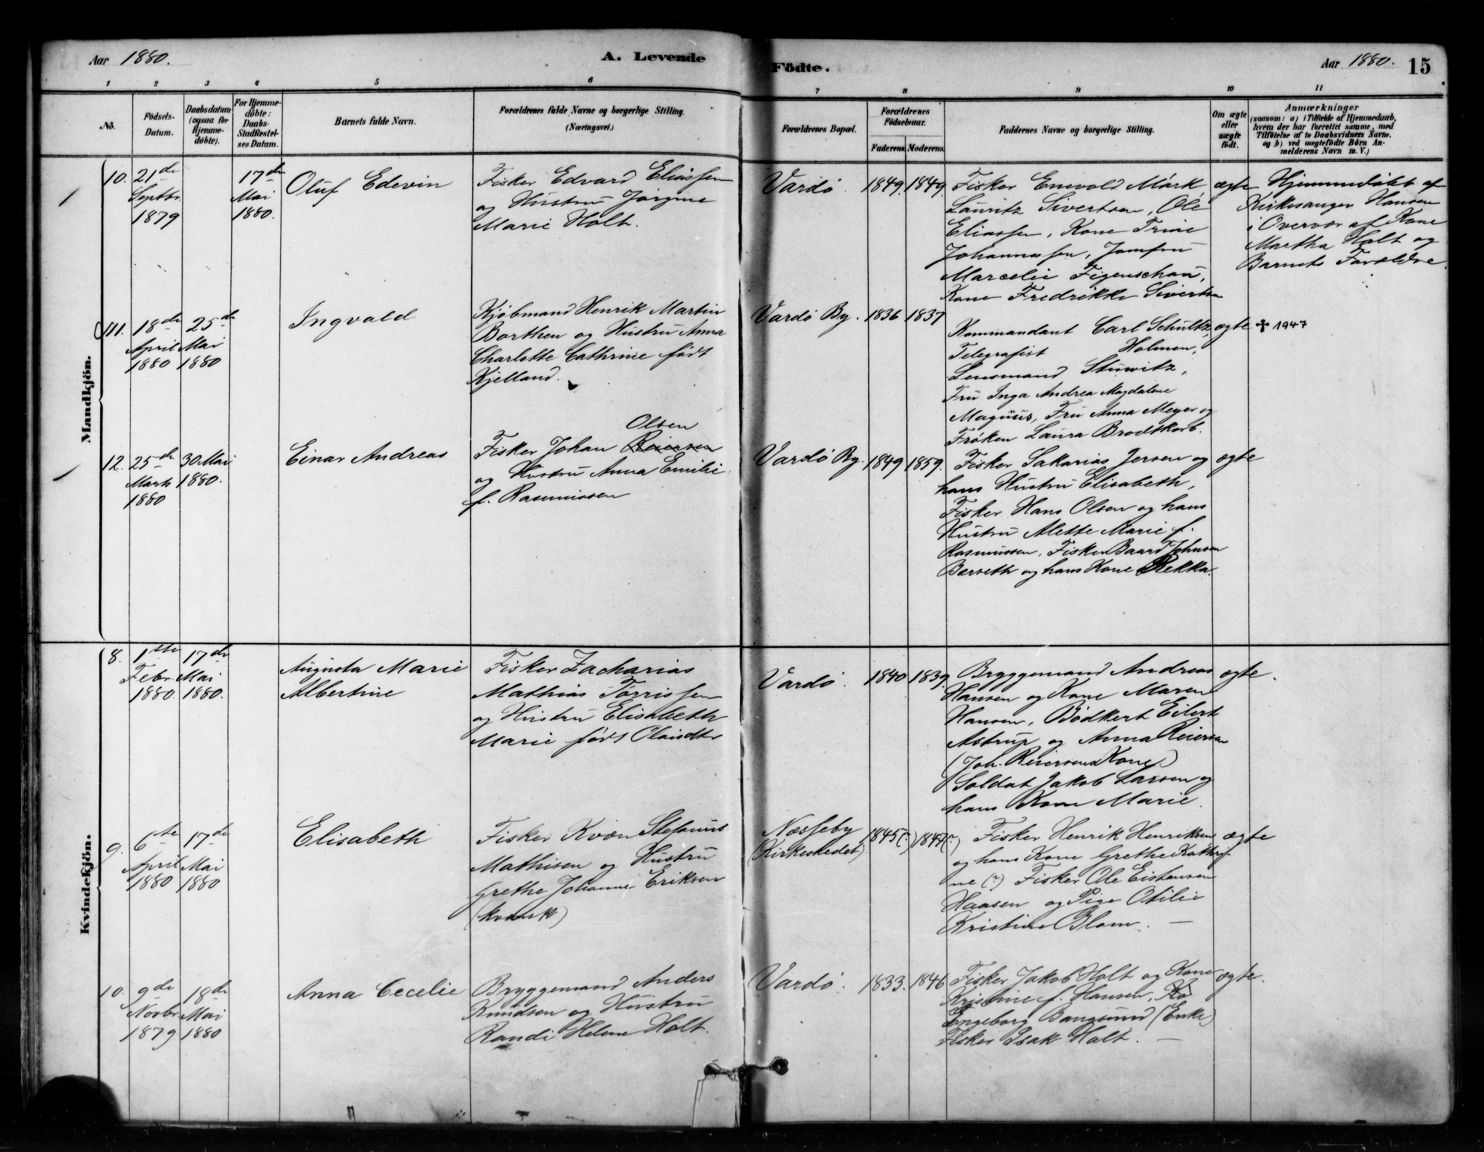 Aar 1880.
A. Levende
Födte.
Aar 1880.
15
1 2 3 4 5 6 7 8 9 10 11
No.
Födsels-
Datum.
Daabsdatum
(ogsaa for
Hjemme-
döbte).
For Hjemme-
döbte:
Daabs-
Stadfæstel-
ses Datum.
Barnets fulde Navn.
Forældrenes fulde Navne og borgerlige Stilling.
(Næringsvei.)
Forældrenes Bopæl.
Forældrenes
Födselsaar.
Faderens Moderens.
Faddernes Navne og borgerlige Stilling.
Om ægte
eller
uægte
födt.
Anmærkninger
(saasom: a) i Tilfælde af Hjemmedaab,
hvem der har forrettet samme, med
Tilföielse af to Daabsvidners Navne.
og b) ved uægtefödte Börn An-
melderens Navn m. V.)
Mandkjön.
10.
21de
Septbr.
1879
17de
Mai
1880.
Oluf Edevin
Fisker Edvard Eliassen
og Hustru Jørgine
Marie Holt.
Vardø.
1849.
1849.
Fisker Enevold Mörk,
Lauritz Sivertsen, Ole
Eliassen, Kone Trine
Johannassen, Jomfru
Marcelie Figenschau,
Kone Fredrikke Sivertsen
ægte
Hjemmedøbt af
Kirkesanger Hansen
i Overvær af Kone
Martha Holt og
Barnets Forældre.
11.
18de
April
1880
25de
Mai
1880
Ingvald
Kjøbmand Henrik Martin
Borthen og Hustru Anna
Charlotte Cathrine født
Kjelland.
Vardø By.
1836
1837
Kommandant Carl Schultz
Telegrafist Holmen,
Lensmand Stuwitz,
Fru Inga Andrea Magdalene
Magnus, Fru Anna Meyer og
Frøken Laura Brodtkorb.
ægte
✝ 1947
12.
25de
Marts
1880
30 Mai
1880.
Einar Andreas
Olsen
Fisker Johan Reiersen
og Hustru Anna Emilie
f. Rasmussen
Vardø By.
1849
1859.
Fisker Sakarias Jensen og
hans Hustru Elisabeth,
Fisker Hans Olsen og hans
Hustru Alette Marie f.
Rasmussen, Fisker Baard Johnsen
Berseth og hans Kone Rekka.
ægte
Kvindekjön.
8.
1ste
Febr
1880.
17de
Mai
1880.
Augusta Marie
Albertine
Fisker Zacharias
Mathias Torrissen
og Hustru Elisabeth
Marie født Olaisdtr
Vardø.
1840
1839
Bryggemand Andreas
Hansen og Kone Maren
Hansen, Bödkert Eilert
Astrup og Anna Reiersen
(Joh. Reiersens Kone)
Soldat Jakob Larsen og
hans Kone Marie.
ægte.
9.
6te
April
1880
17de
Mai
1880
Elisabeth
Fisker Kvæn Stefanus
Mathisen og Hustru
Grethe Johanne Eriksen
(kvænsk)
Næsseby
(Kirkestedet)
1845(?)
1847(?)
Fisker Henrik Henriksen
og hans Kone Grethe Kathri-
ne (?) Fisker Ole Eistensen
Haasen og Pige Otilie
Kristine Blom. —
ægte
10.
9de
Novbr
1879
18de
Mai
1880
Anna Cecelie
Bryggemand Anders
Knudsen og Hustru
Randi Helene Holt.
Vardø.
1833.
1846
Fisker Jakob Holt og Kone
Kristine f. Hansen,
Engeborg Bangsund (Enke)
Fisker Isak Holt. —
ægte.